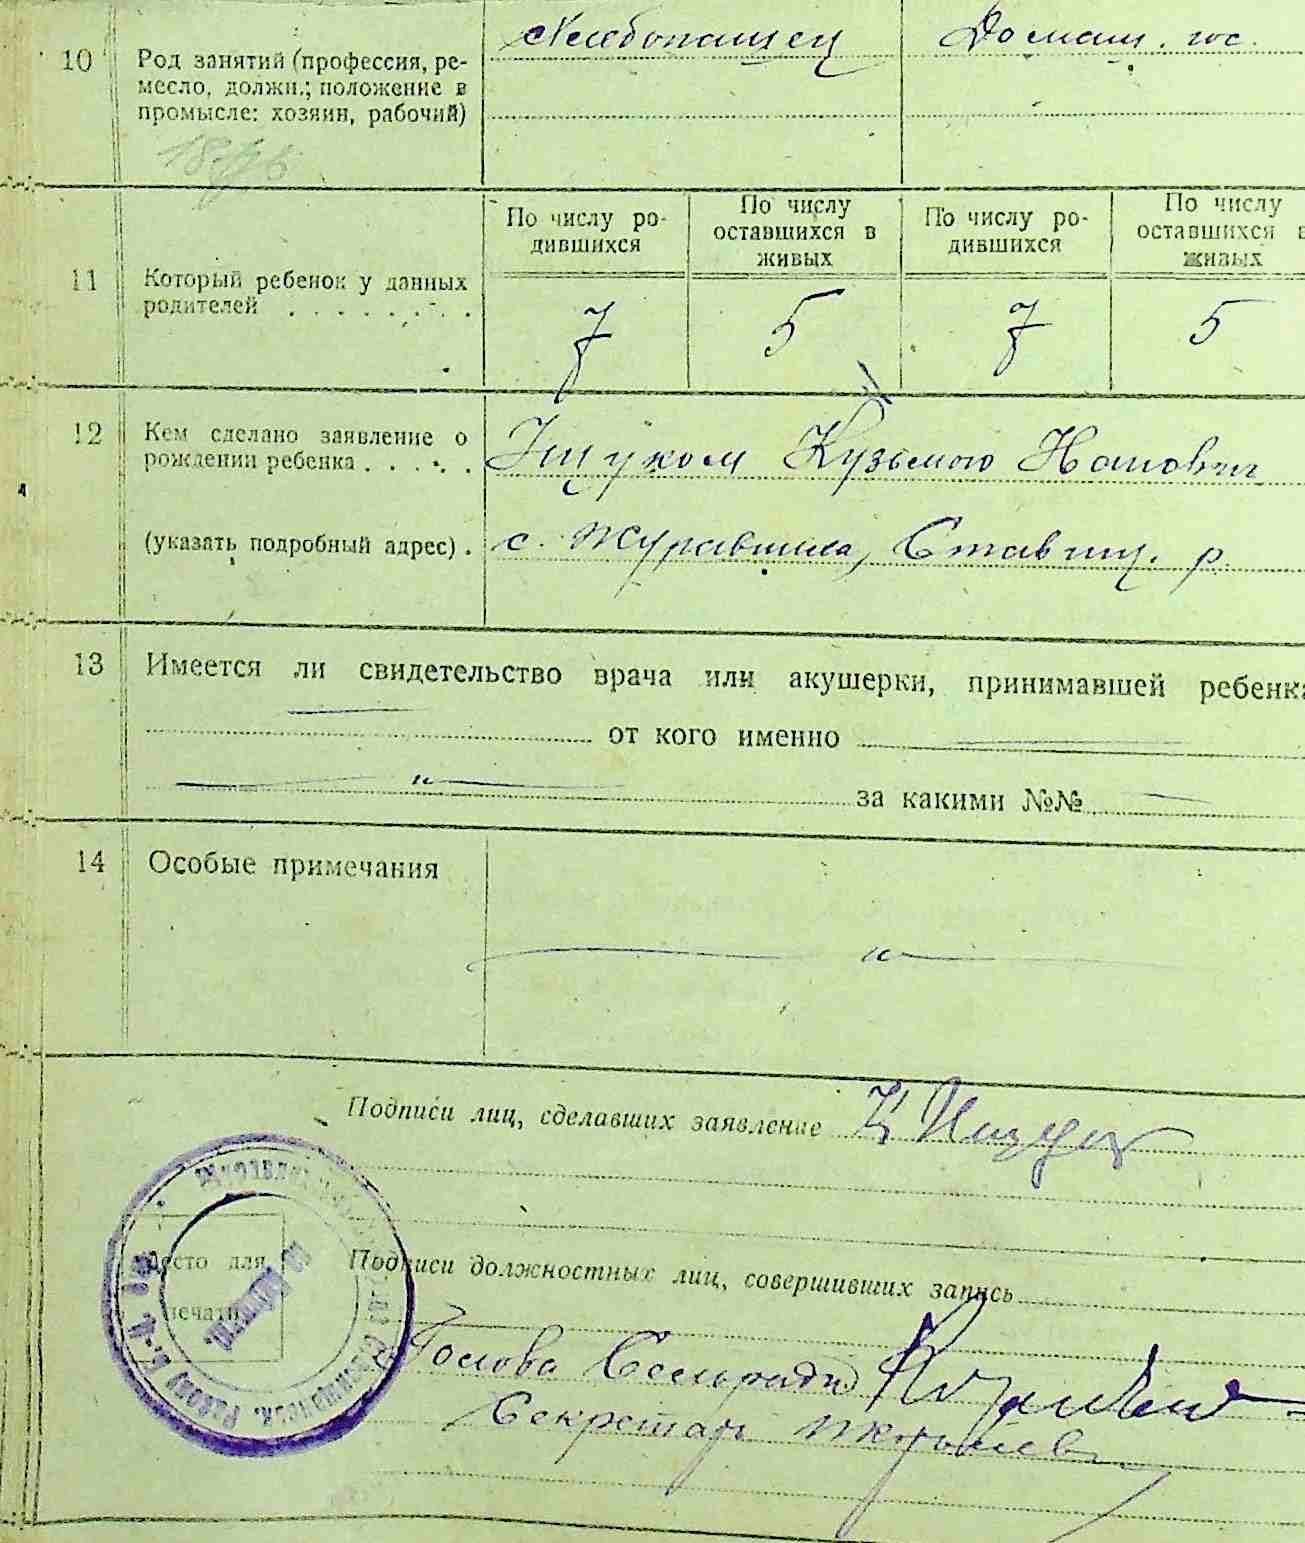 Хлебопашец Домашн. хоз.
10 Род занятий (профессия, ре-
месло, должн.; положение в
промысле: хозяин, рабочий)
По числу ро-
дившихся
По числу
оставшихся в
живых
По числу ро-
дившихся
По числу
оставшихся в
живых
11 Который ребенок у данных
родителей . . . . . . . .
7 5 7 5
12 Кем сделано заявление о
рождении ребенка . . . . .
Кузьмою
(указать подробный адрес) .
с. Журавлиха, Ставищ. р.
13 Имеется ли свидетельство врача или акушерки, принимавшей ребенка
от кого именно
— " — за какими №№
14 Особые примечания
— " —
Подписи лиц, сделавших заявление
Место для
печати
Подписи должностных лиц, совершивших запись
Голова Сельради
Секретарь